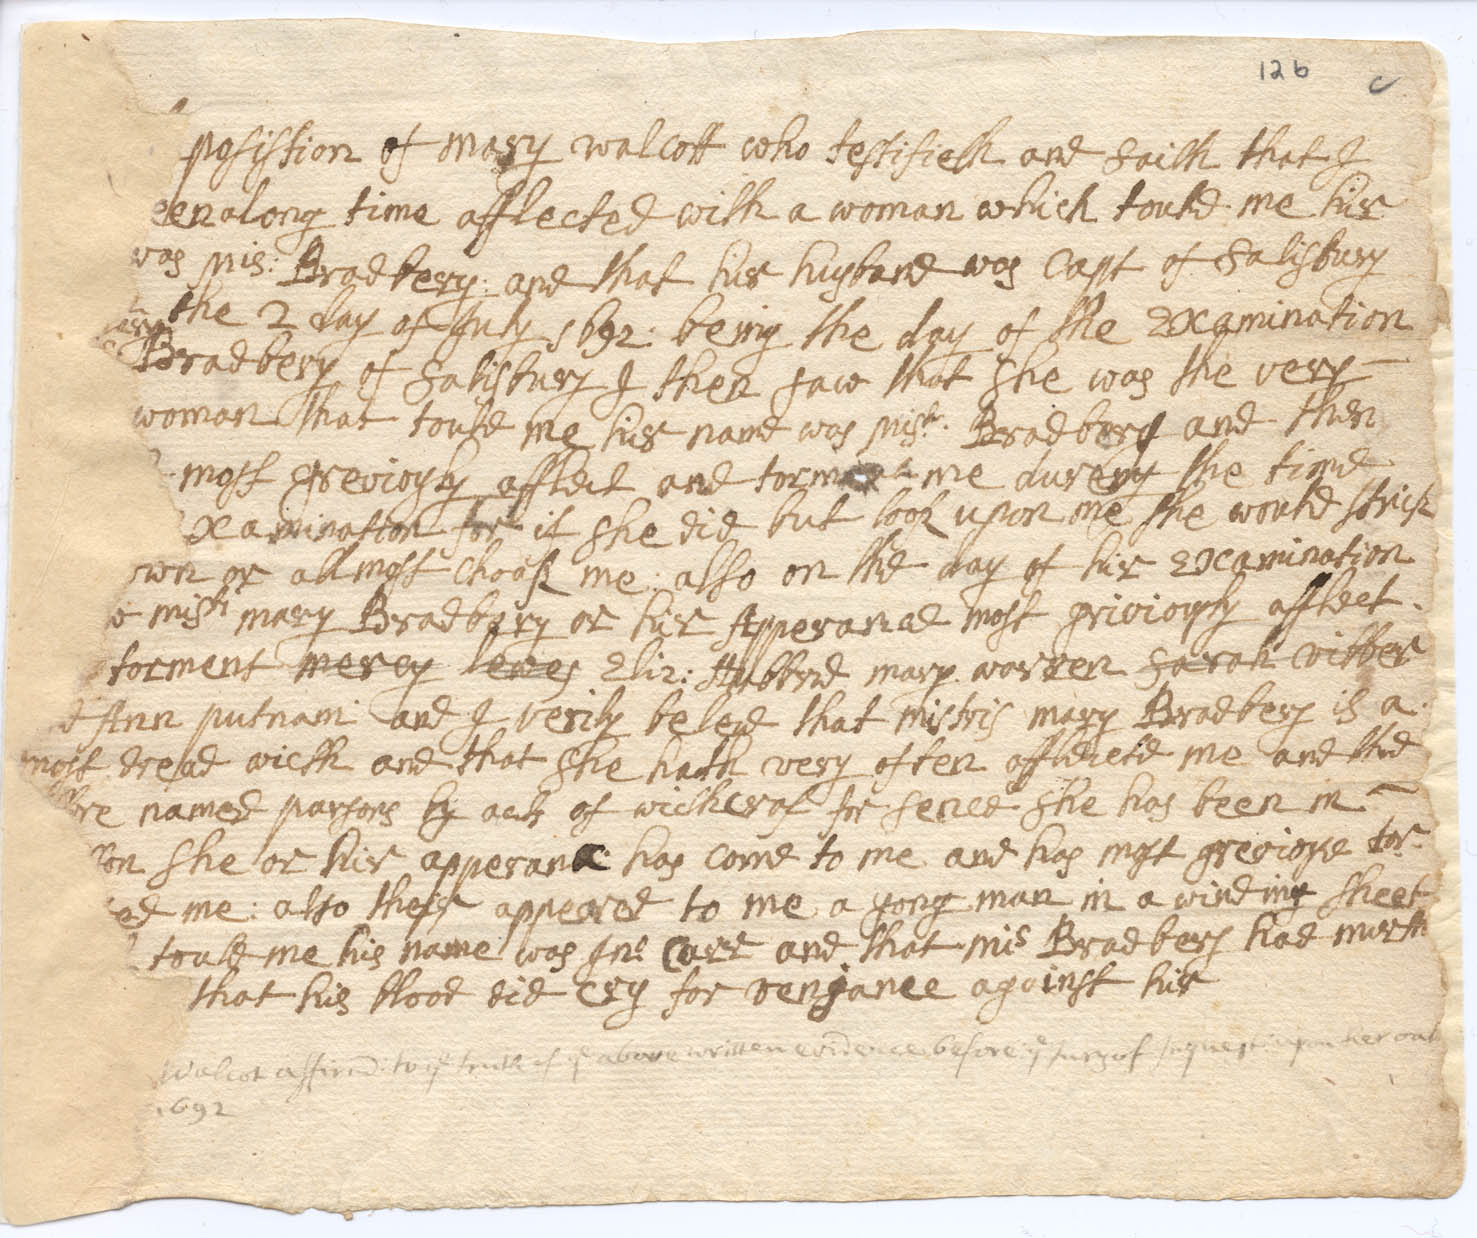 126 c
posistion of mary walcott who testifieth and saith that I
een along time afflected with a woman which tould me hir
was mis: Bradbery: and that hir husband was Capt of Salisbury
the 2 day of July 1692: being the day of the Examination
ary Bradbery of Salisbury I then saw that she was the very
woman that tould me hir name was mistr. Bradbery and then
most greviously afflect and torment me dureing the time
xamination for if she did but look upon me she would strick
own or allmost choak me: also on the day of hir Examination
mistr mary Bradbery or hir Apperance most griviously afflect
torment mercy lewes Eliz: Hubbrd mary warren sarah vibber
d Ann putnam and I verily beleve that mistris mary Bradbery is a
most dread wicth and that she hath very often afflected me and the
re named parsons by acts of wicthcraf for sence she has been in
son she or hir apperance has come to me and has most greviously tor
ed me: also their appeared to me a yong man in a winding sheet
tould me his name was Jno: Carr and that mis Bradbery had murth
that his blood did cry for venjance against hir
Walcot affirmd: to ye truth of ye above written evidence: before ye Jury of Inquest: upon her oath
1692